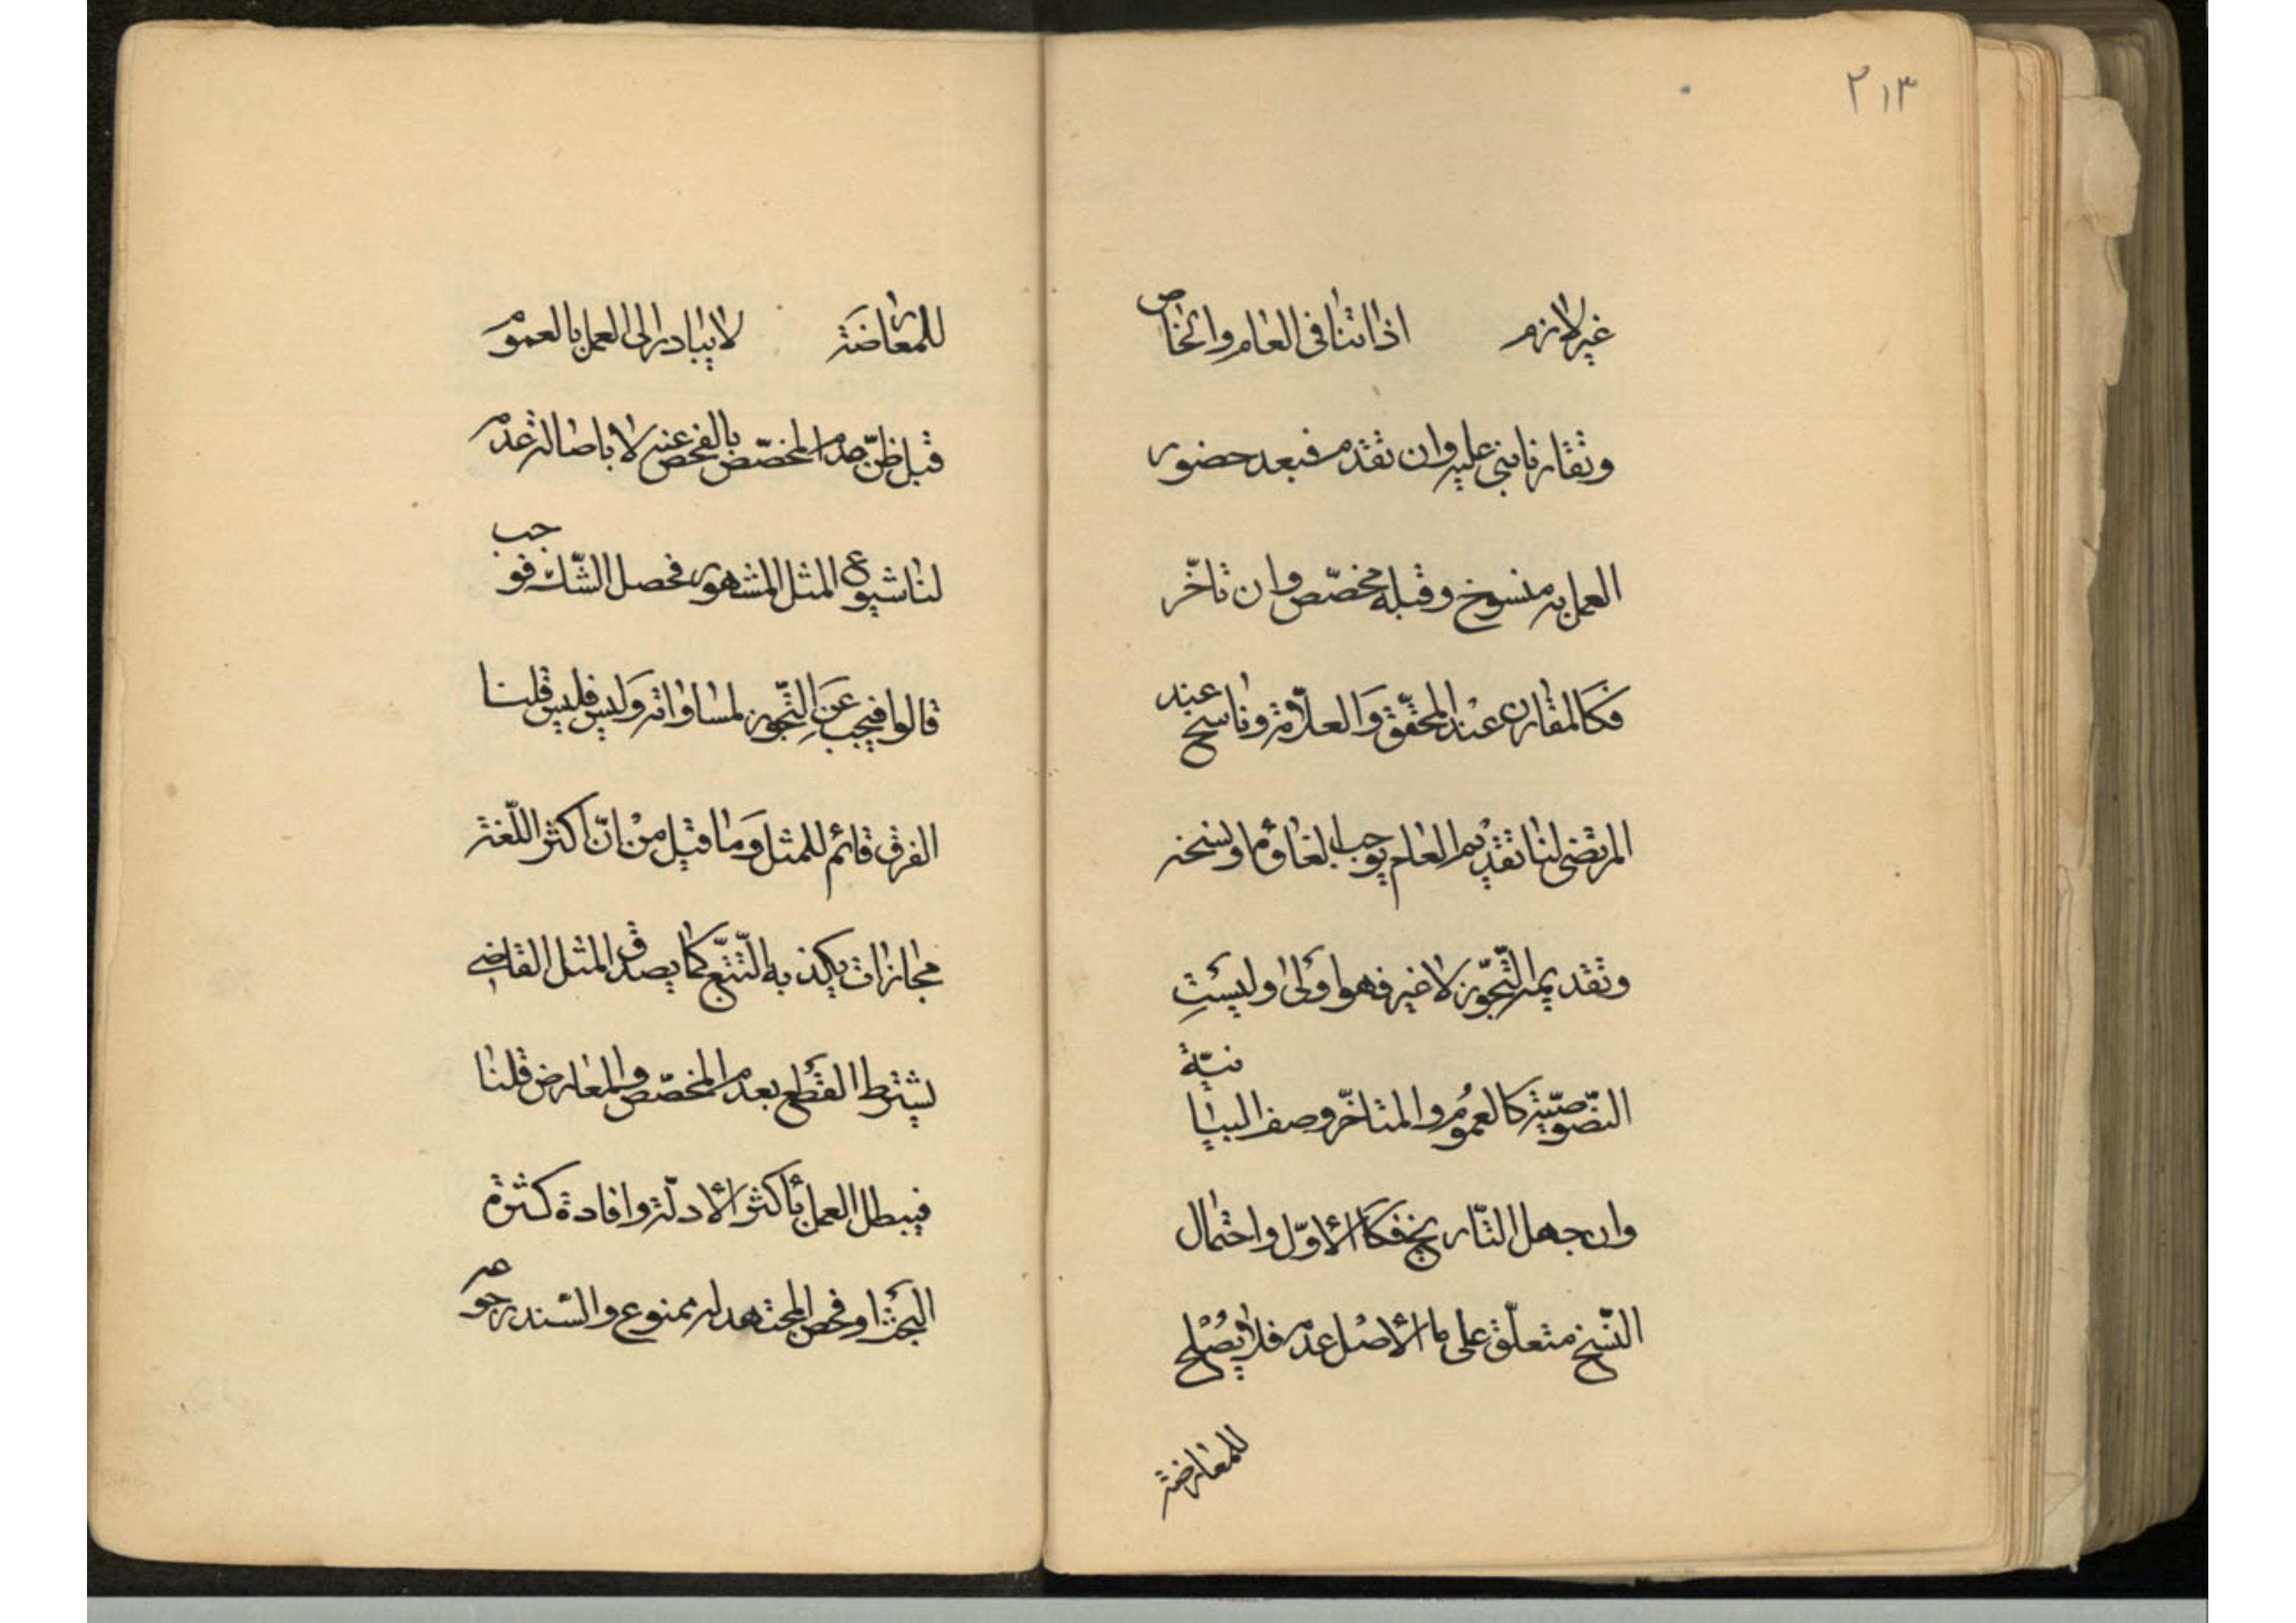 ٢١٣
غير لازم اذا تنافى العام والخاص
وتقارنا بنى عليه وان تقدم فبعد حضور
العمل به منسوخ وقبله مخصّص وان تاخّر
فكالمقارن عند المحقّق والعلاّمة وناسخ عند
المرتضى لنا تقديم العام يوجب الغاؤما ونسخه
وتقديمه التّجوّز لا غير فهو اولى وليست
النّصوصيّة كالعموم والمتاخّر وصف البيانيّة
وان جهل التّاريخ فكالاوّل واحتمال
النّسخ متعلّق على ما الاصل عدمه فلا يصلح
للمعارضة
للمعارضة لا يبادر الى العمل بالعموم
قبل ظنّ عدم المخصّص بالفحص عنه لا باصالة عدمه
لنا شيوع المثل المشهور فحصل الشّك فوجب
قالوا فيجب عن التّجوز لمساواته وليس فليس قلنا
الفرق قائم للمثل وما قيل من انّ اكثر اللّغة
مجازات يكذبه التّتبّع كما يصدق المثل القاضي
يشترط القطع بعدم المخصّص والمعارض قلنا
فيبطل العمل بأكثر الأدلّة وافادة كثرة
البحث او فحص المجتهد له ممنوع والسّند رجوعه